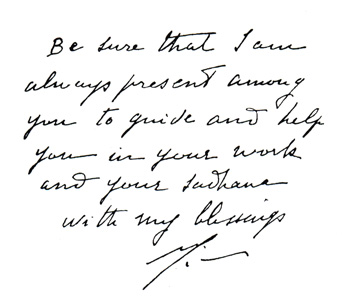 Be sure that I am
always present among
you to guide and help
you in your work
and your sadhana
with my blessings